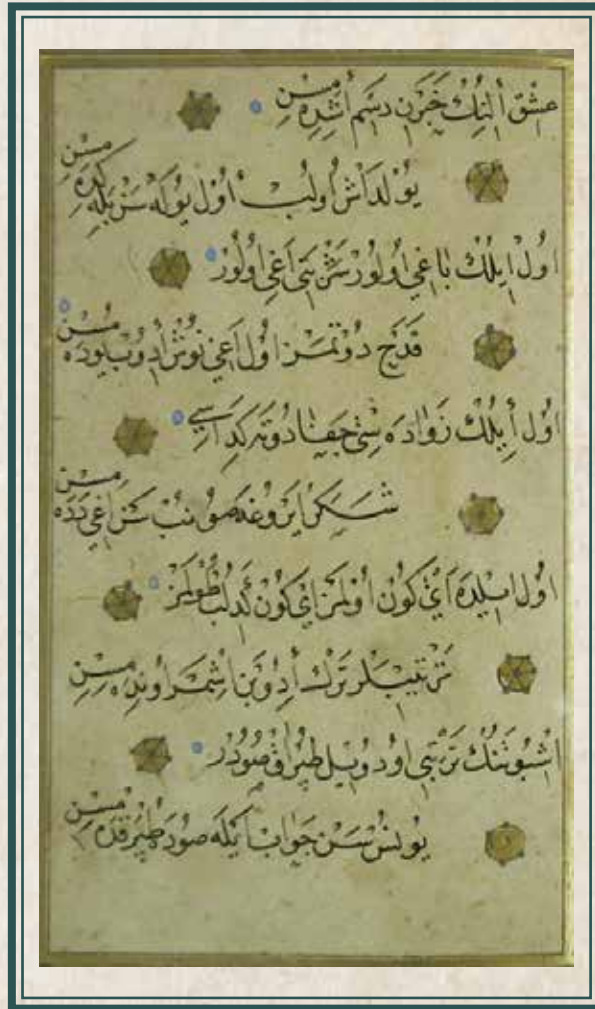 عِشْقْ أَلِنِكْ خَبَرَنْ دِسَمْ أَشِدِهِ مِسِنْ
يُولْدَاشْ اُولُبْ اُولْ يُولَهْ سَنْ بِلَهْ كِدَهِ مِسِنْ
اُولْ اِيلُكْ بَاغِي اُولُورْ شَرْبَتِي اَغِي اُولُورْ
قَدَحْ دُوتْمَزْ اُولْ اَغِي نُوشْ اِدُوبْ يُودَهْ مِسِنْ
اُولْ اِيلُكْ زَوَادَهْ سِي جَفَايَا دُوتَرْ كَدَاسِي
شَكَرْ اَيْرُوغَهْ صُونُبْ سَنْ اَغِي دَدَهْ مِسِنْ
اُولْ اِيلْدَهْ اَيْ كُونْ اُولْمَزْ اَيْ كُونْ كَدِلُبْ طُولْمَزْ
تَرْتِيبْلَرْ تَرْكْ اِدُوبَنْ اِشْمَرْ اُونِدِهِ مِسِنْ
اِشْبُو تَنُكْ تَرْتِيبِي اُودُ وِيِيلْ طُپْرَاقْ صُودُرْ
يُونُسْ سَنْ جَوَابْ اَيْلَهْ صُودَهْ طُپْرَقْدَهْ مِسِنْ